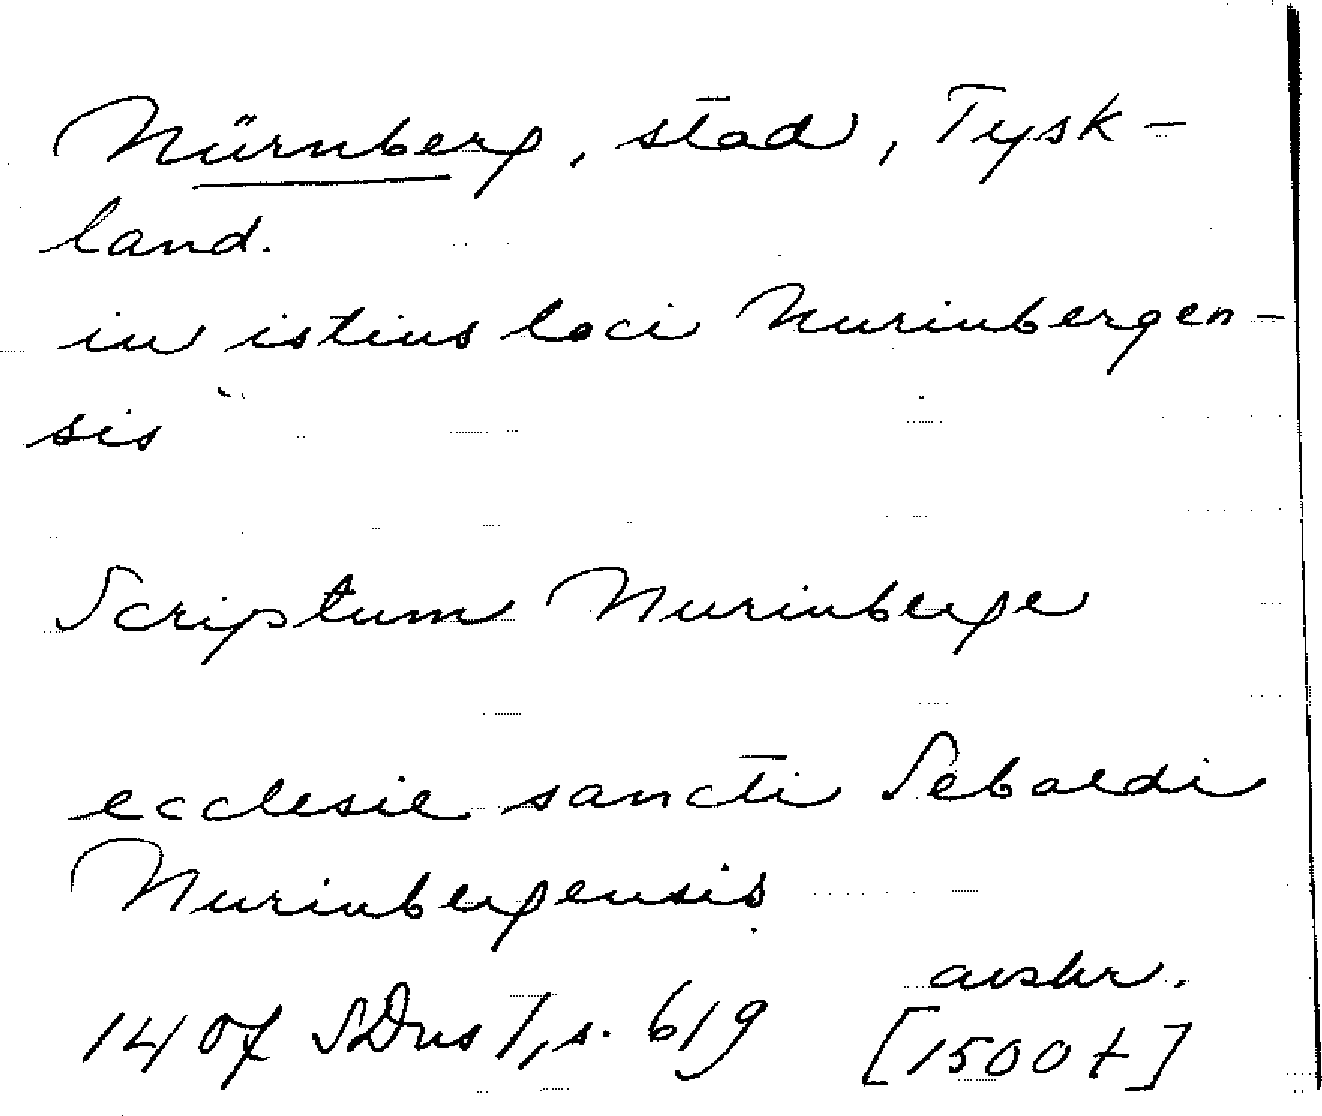 Nürnberg, stad, Tysk-
land.
in istius loci Nurinbergen-
sis
Scriptum Nurinberge
ecclesie sancti Sebaldi
Nurinbergensis
avskr.
1407 SDns 1, s. 619 [1500 t]